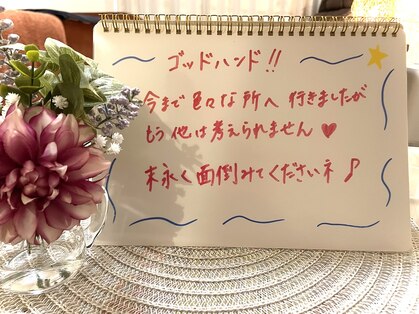 ゴッドハンド!!
今まで色々な所へ行きましたが
もう他は考えられません♥
末永く面倒みてくださいネ♪